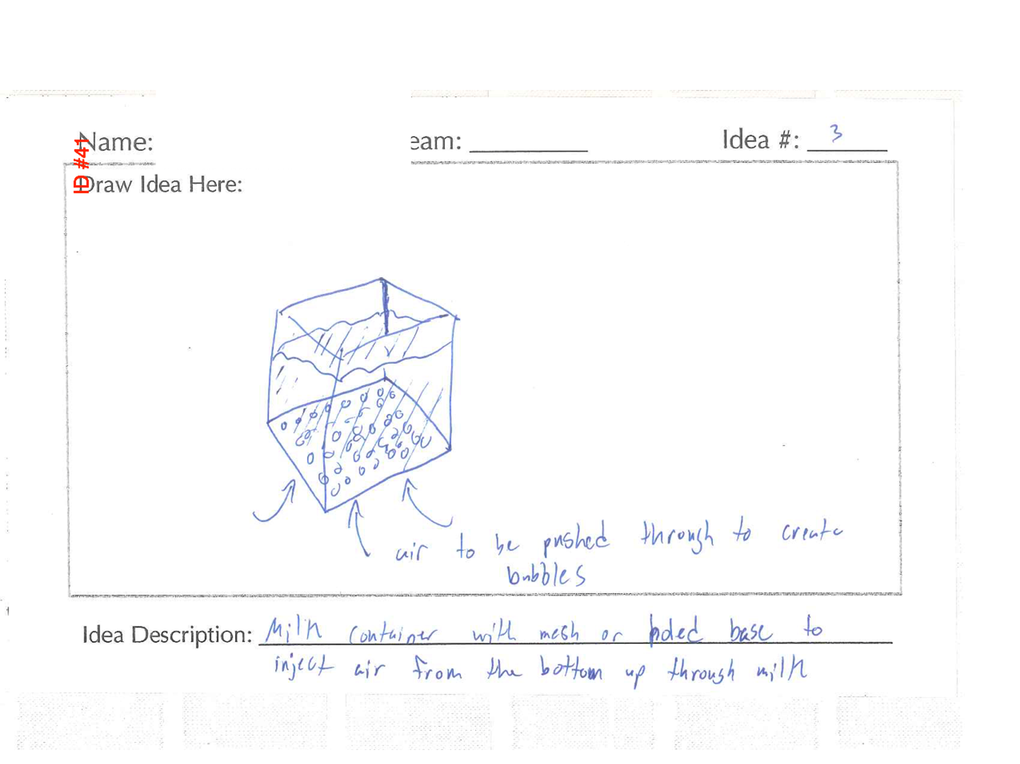 ID #41
Name: eam: Idea #: 3
Draw Idea Here:
air to be pushed through to create
bubbles
Idea Description: Milk container with mesh or holed base to
inject air from the bottom up through milk